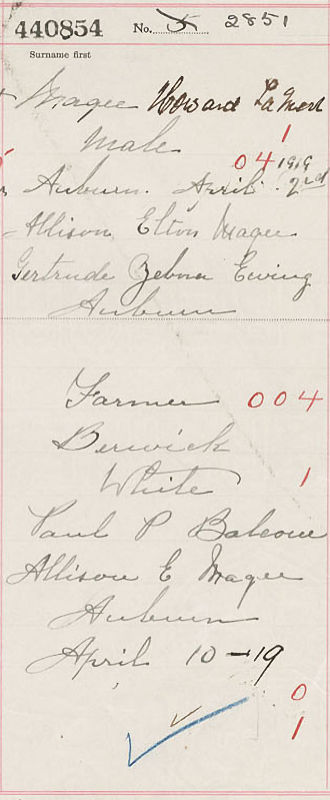 440854 No. 5 2851
Surname first
Magee Howard LaMert
Male 1
04 1919
Auburn. April 2nd
Allison Elton Magee
Gertrude Zebora Ewing
Auburn
Farmer 004
Berwick
White 1
Paul P Balcome
Allison E Magee
Auburn
April 10-19
0
1